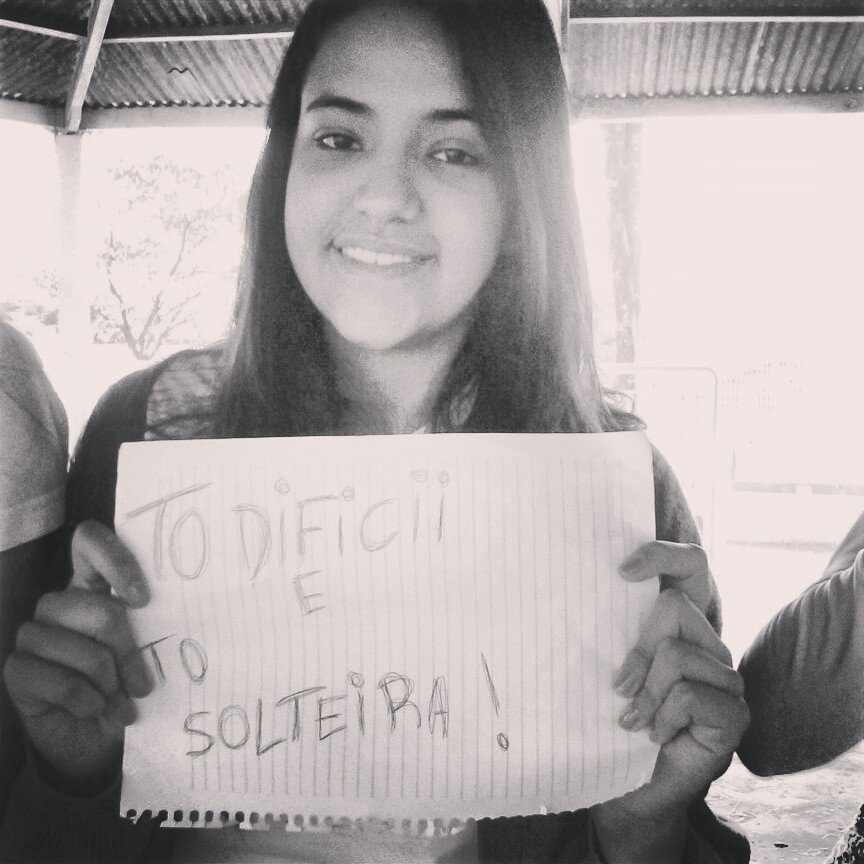 TO DiFiCii
E
TO
SOLTEiRA!